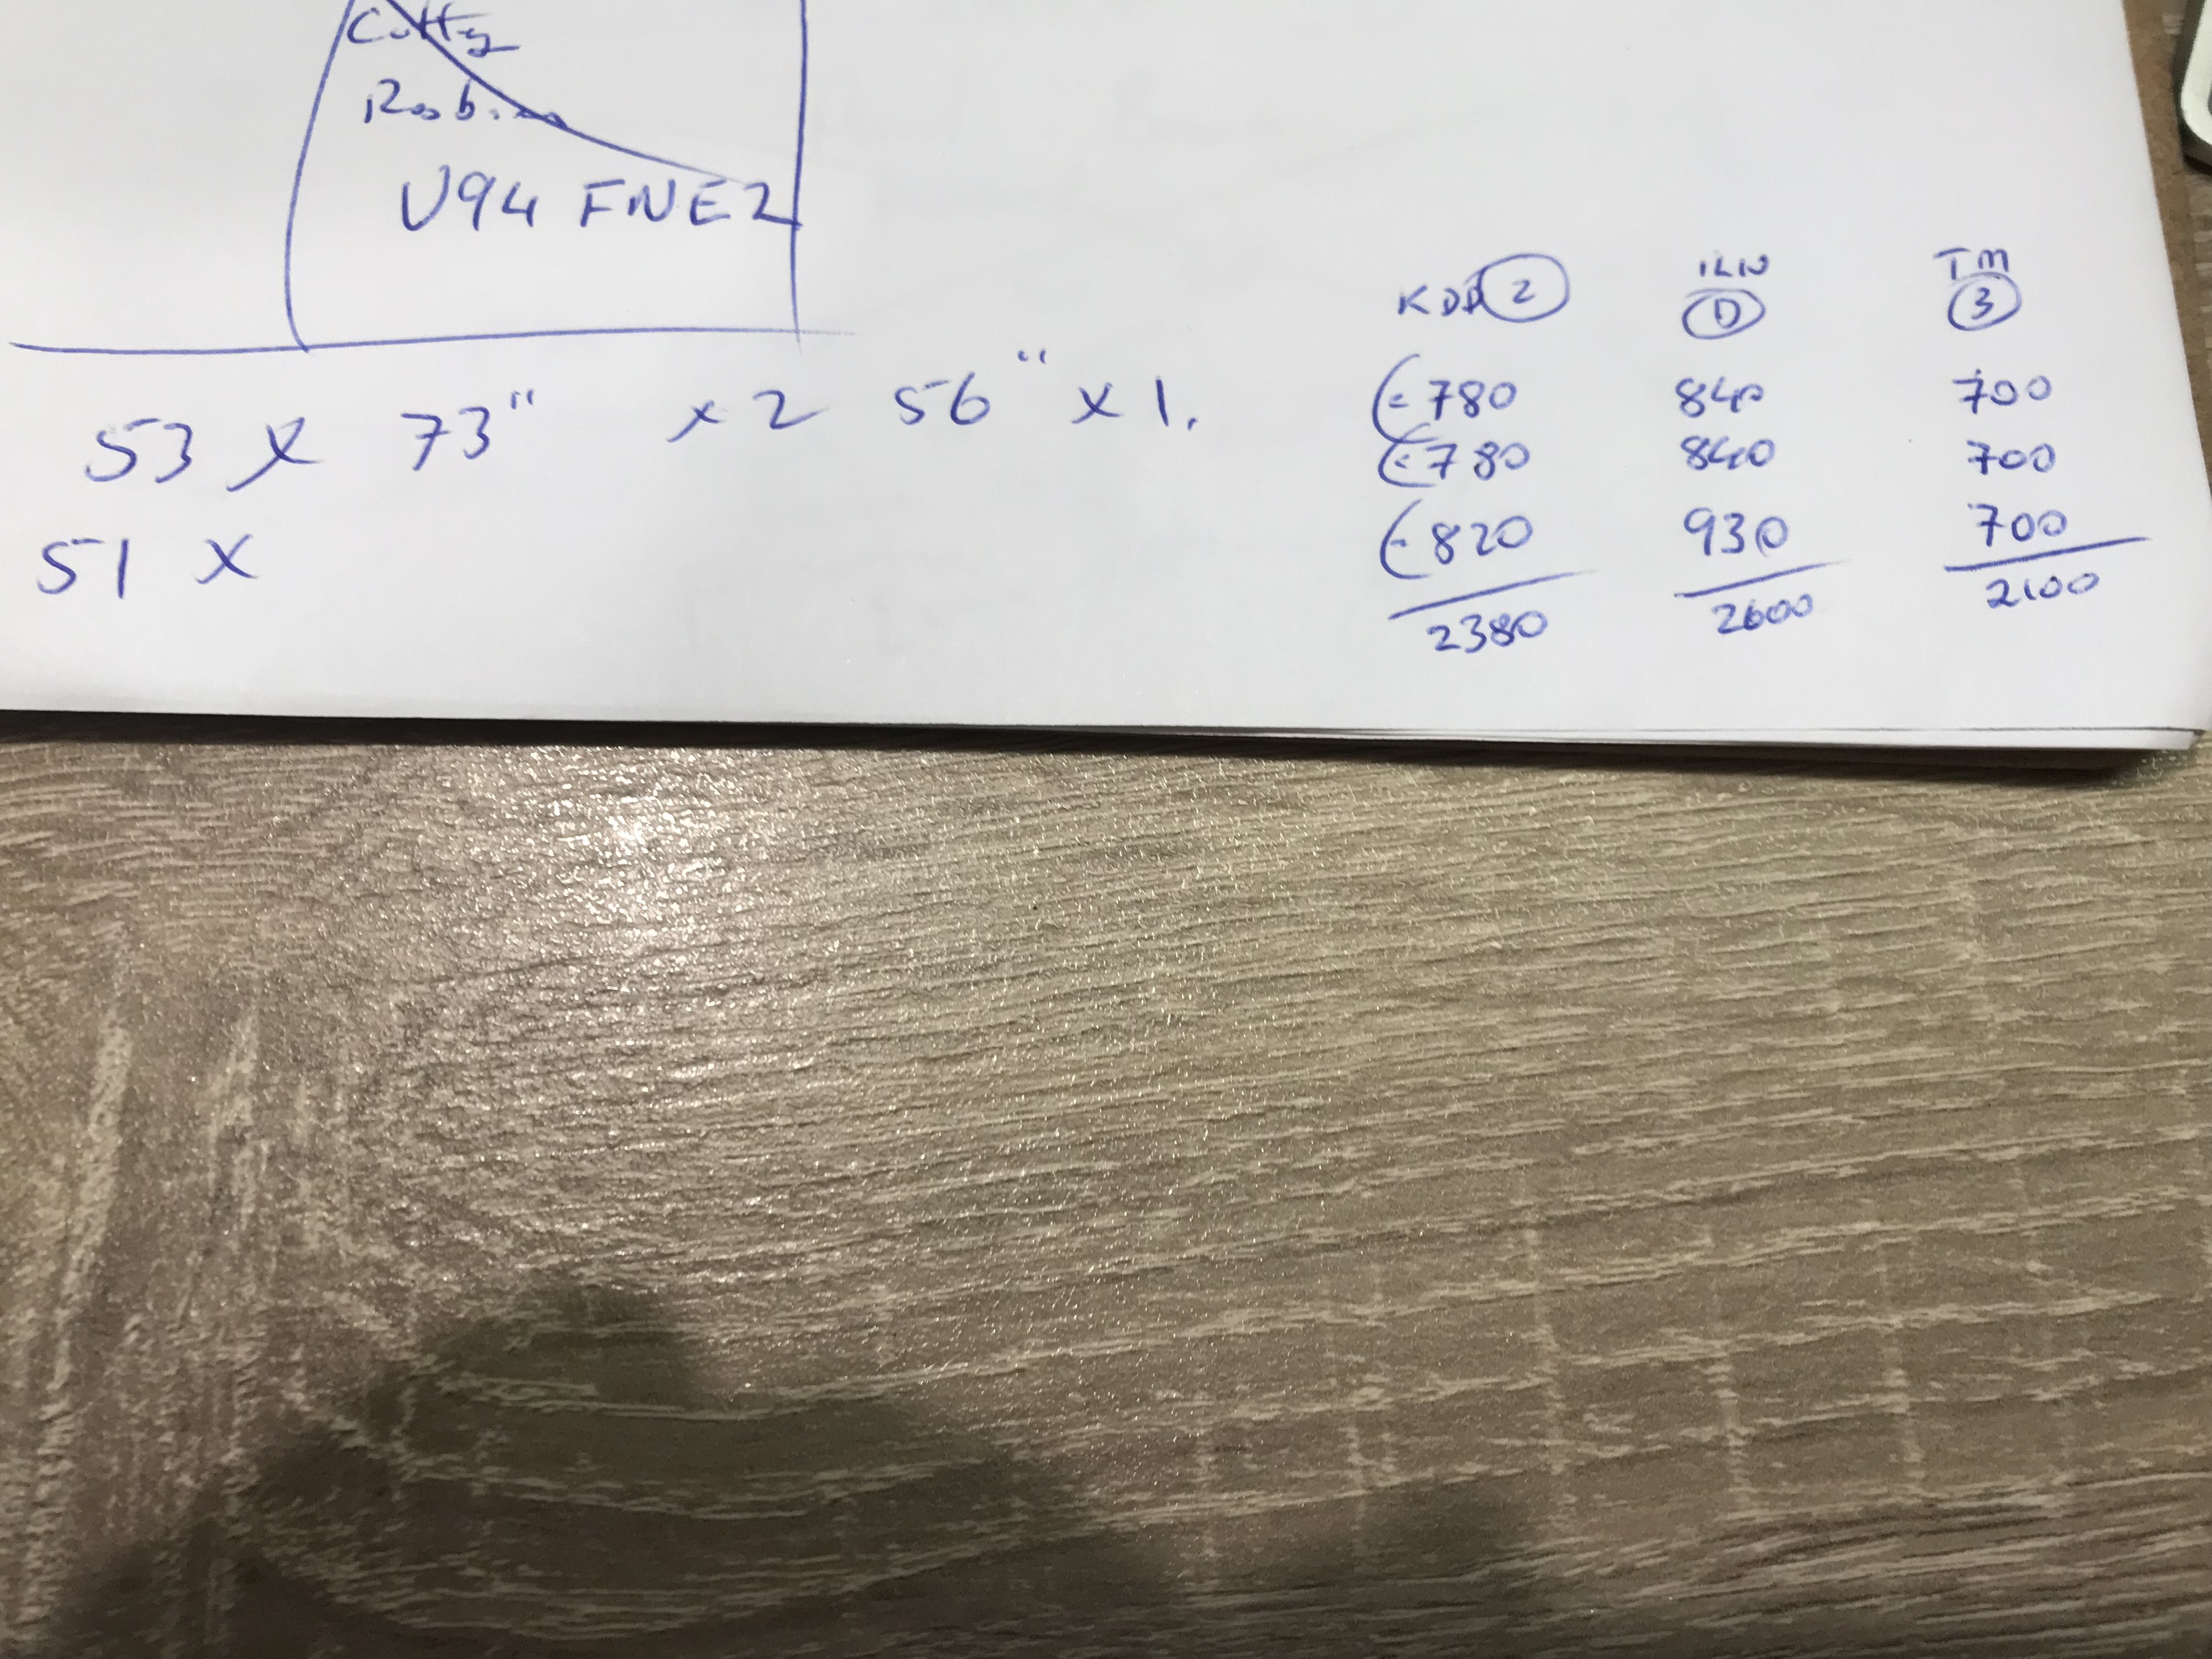 Cutty
U94 FNE2
53 x 73" x 2 56" x 1.
51 x
KDD 2 ILN D TM 3
780 840 700
780 840 700
820 930 700
2380 2600 2100